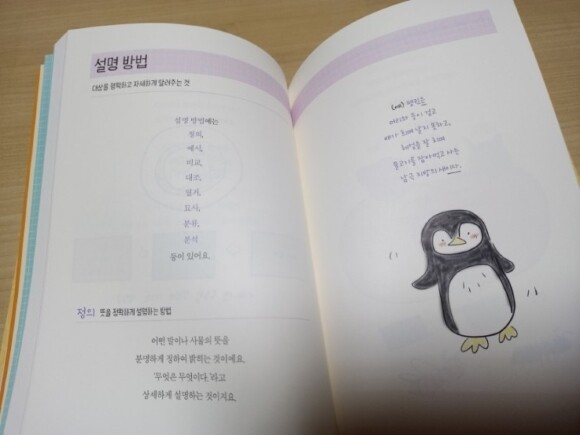 설명 방법
대상을 정확하고 자세하게 알려주는 것
설명 방법에는
정의,
예시,
비교,
대조,
열거,
묘사,
분류,
분석
등이 있어요.
정의 뜻을 정확하게 설명하는 방법
어떤 말이나 사물의 뜻을
분명하게 정하여 밝히는 것이에요.
'무엇은 무엇이다.'라고
상세하게 설명하는 것이지요.
(예) 펭귄은
머리와 등이 검고
배가 희며 날지 못하고,
헤엄을 잘 쳐
물고기를 잡아먹고 사는
남극 지방의 새이다.